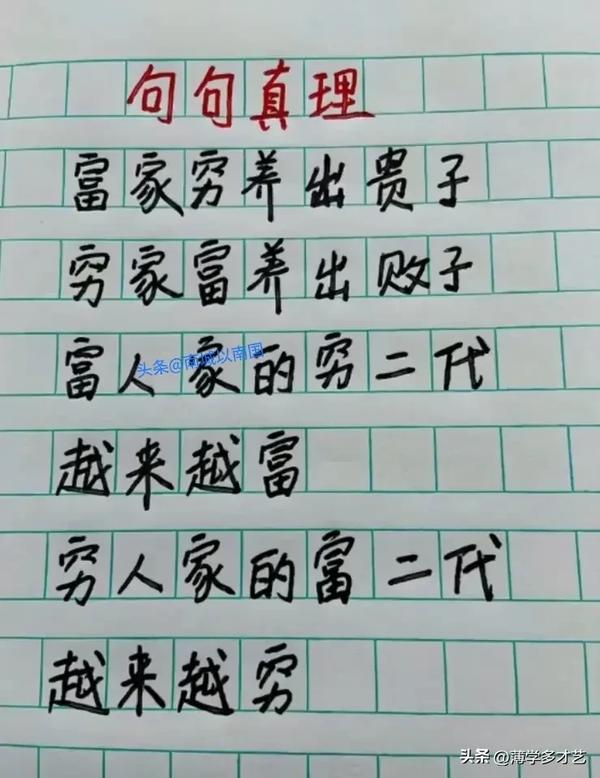 句句真理
富家穷养出贵子
穷家富养出败子
富人家的穷二代
头条@南城以南国
越来越富
穷人家的富二代
越来越穷
头条 @薄学多才艺